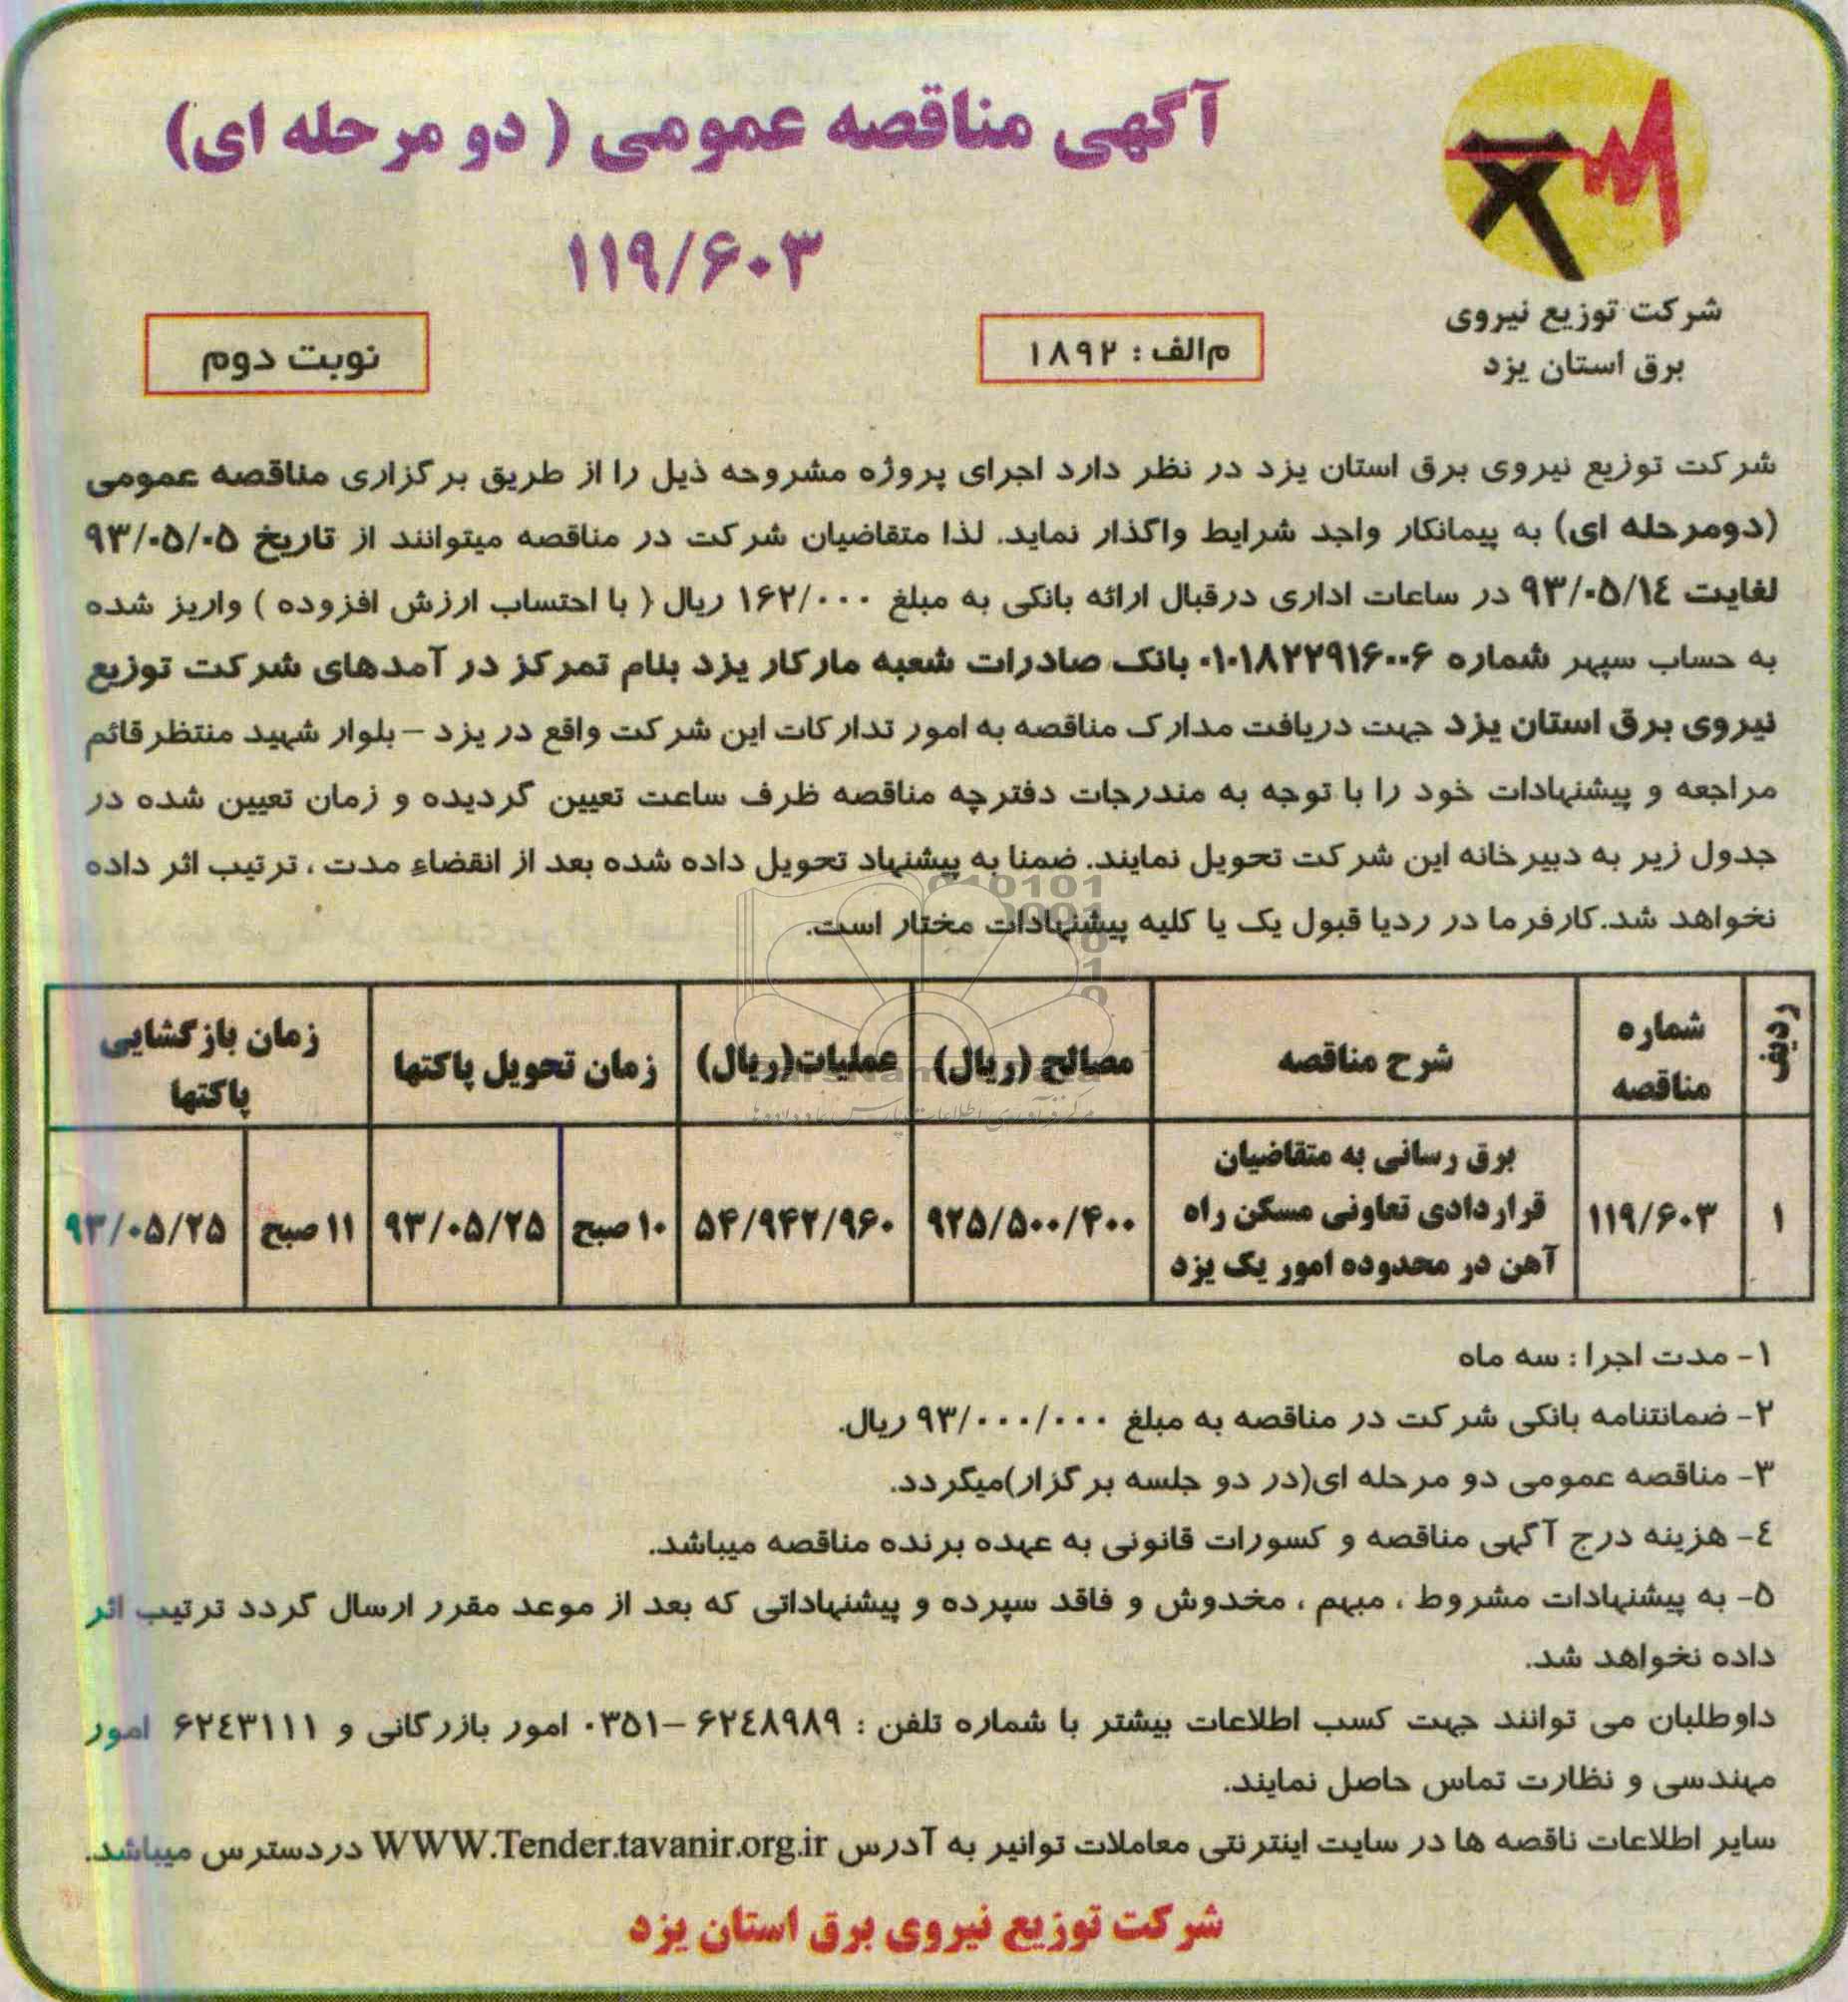 آگهی مناقصه عمومی ( دو مرحله ای)
۱۱۹/۶۰۳
شرکت توزیع نیروی
برق استان یزد
م الف : ۱۸۹۲
نوبت دوم
شرکت توزیع نیروی برق استان یزد در نظر دارد اجرای پروژه مشروحه ذیل را از طریق برگزاری مناقصه عمومی
(دومرحله ای) به پیمانکار واجد شرایط واگذار نماید. لذا متقاضیان شرکت در مناقصه میتوانند از تاریخ ۹۳/۰۵/۰۵
لغایت ۹۳/۰۵/۱٤ در ساعات اداری درقبال ارائه بانکی به مبلغ ۱۶۲/۰۰۰ ریال ( با احتساب ارزش افزوده ) واریز شده
به حساب سپهر شماره ۰۱۰۱۸۲۲۹۱۶۰۰۶ بانک صادرات شعبه مارکار یزد بنام تمرکز در آمدهای شرکت توزیع
نیروی برق استان یزد جهت دریافت مدارک مناقصه به امور تدارکات این شرکت واقع در یزد – بلوار شهید منتظرقائم
مراجعه و پیشنهادات خود را با توجه به مندرجات دفترچه مناقصه ظرف ساعت تعیین گردیده و زمان تعیین شده در
جدول زیر به دبیرخانه این شرکت تحویل نمایند. ضمنا به پیشنهاد تحویل داده شده بعد از انقضاء مدت ، ترتیب اثر داده
نخواهد شد.کارفرما در ردیا قبول یک یا کلیه پیشنهادات مختار است.
ردیف
شماره
مناقصه
شرح مناقصه
مصالح (ریال)
عملیات(ریال)
زمان تحویل پاکتها
زمان بازگشایی
پاکتها
۱
۱۱۹/۶۰۳
برق رسانی به متقاضیان
قراردادی تعاونی مسکن راه
آهن در محدوده امور یک یزد
۹۲۵/۵۰۰/۴۰۰
۵۴/۹۴۲/۹۶۰
۱۰ صبح
۹۳/۰۵/۲۵
۱۱ صبح
۹۳/۰۵/۲۵
۱- مدت اجرا : سه ماه
۲- ضمانتنامه بانکی شرکت در مناقصه به مبلغ ۹۳/۰۰۰/۰۰۰ ریال.
۳- مناقصه عمومی دو مرحله ای(در دو جلسه برگزار)میگردد.
٤- هزینه درج آگهی مناقصه و کسورات قانونی به عهده برنده مناقصه میباشد.
۵- به پیشنهادات مشروط ، مبهم ، مخدوش و فاقد سپرده و پیشنهاداتی که بعد از موعد مقرر ارسال گردد ترتیب اثر
داده نخواهد شد.
داوطلبان می توانند جهت کسب اطلاعات بیشتر با شماره تلفن : ۶۲٤۸۹۸۹ –۰۳۵۱ امور بازرگانی و ۶۲٤۳۱۱۱ امور
مهندسی و نظارت تماس حاصل نمایند.
سایر اطلاعات ناقصه ها در سایت اینترنتی معاملات توانیر به آدرس WWW.Tender.tavanir.org.ir دردسترس میباشد.
شرکت توزیع نیروی برق استان یزد